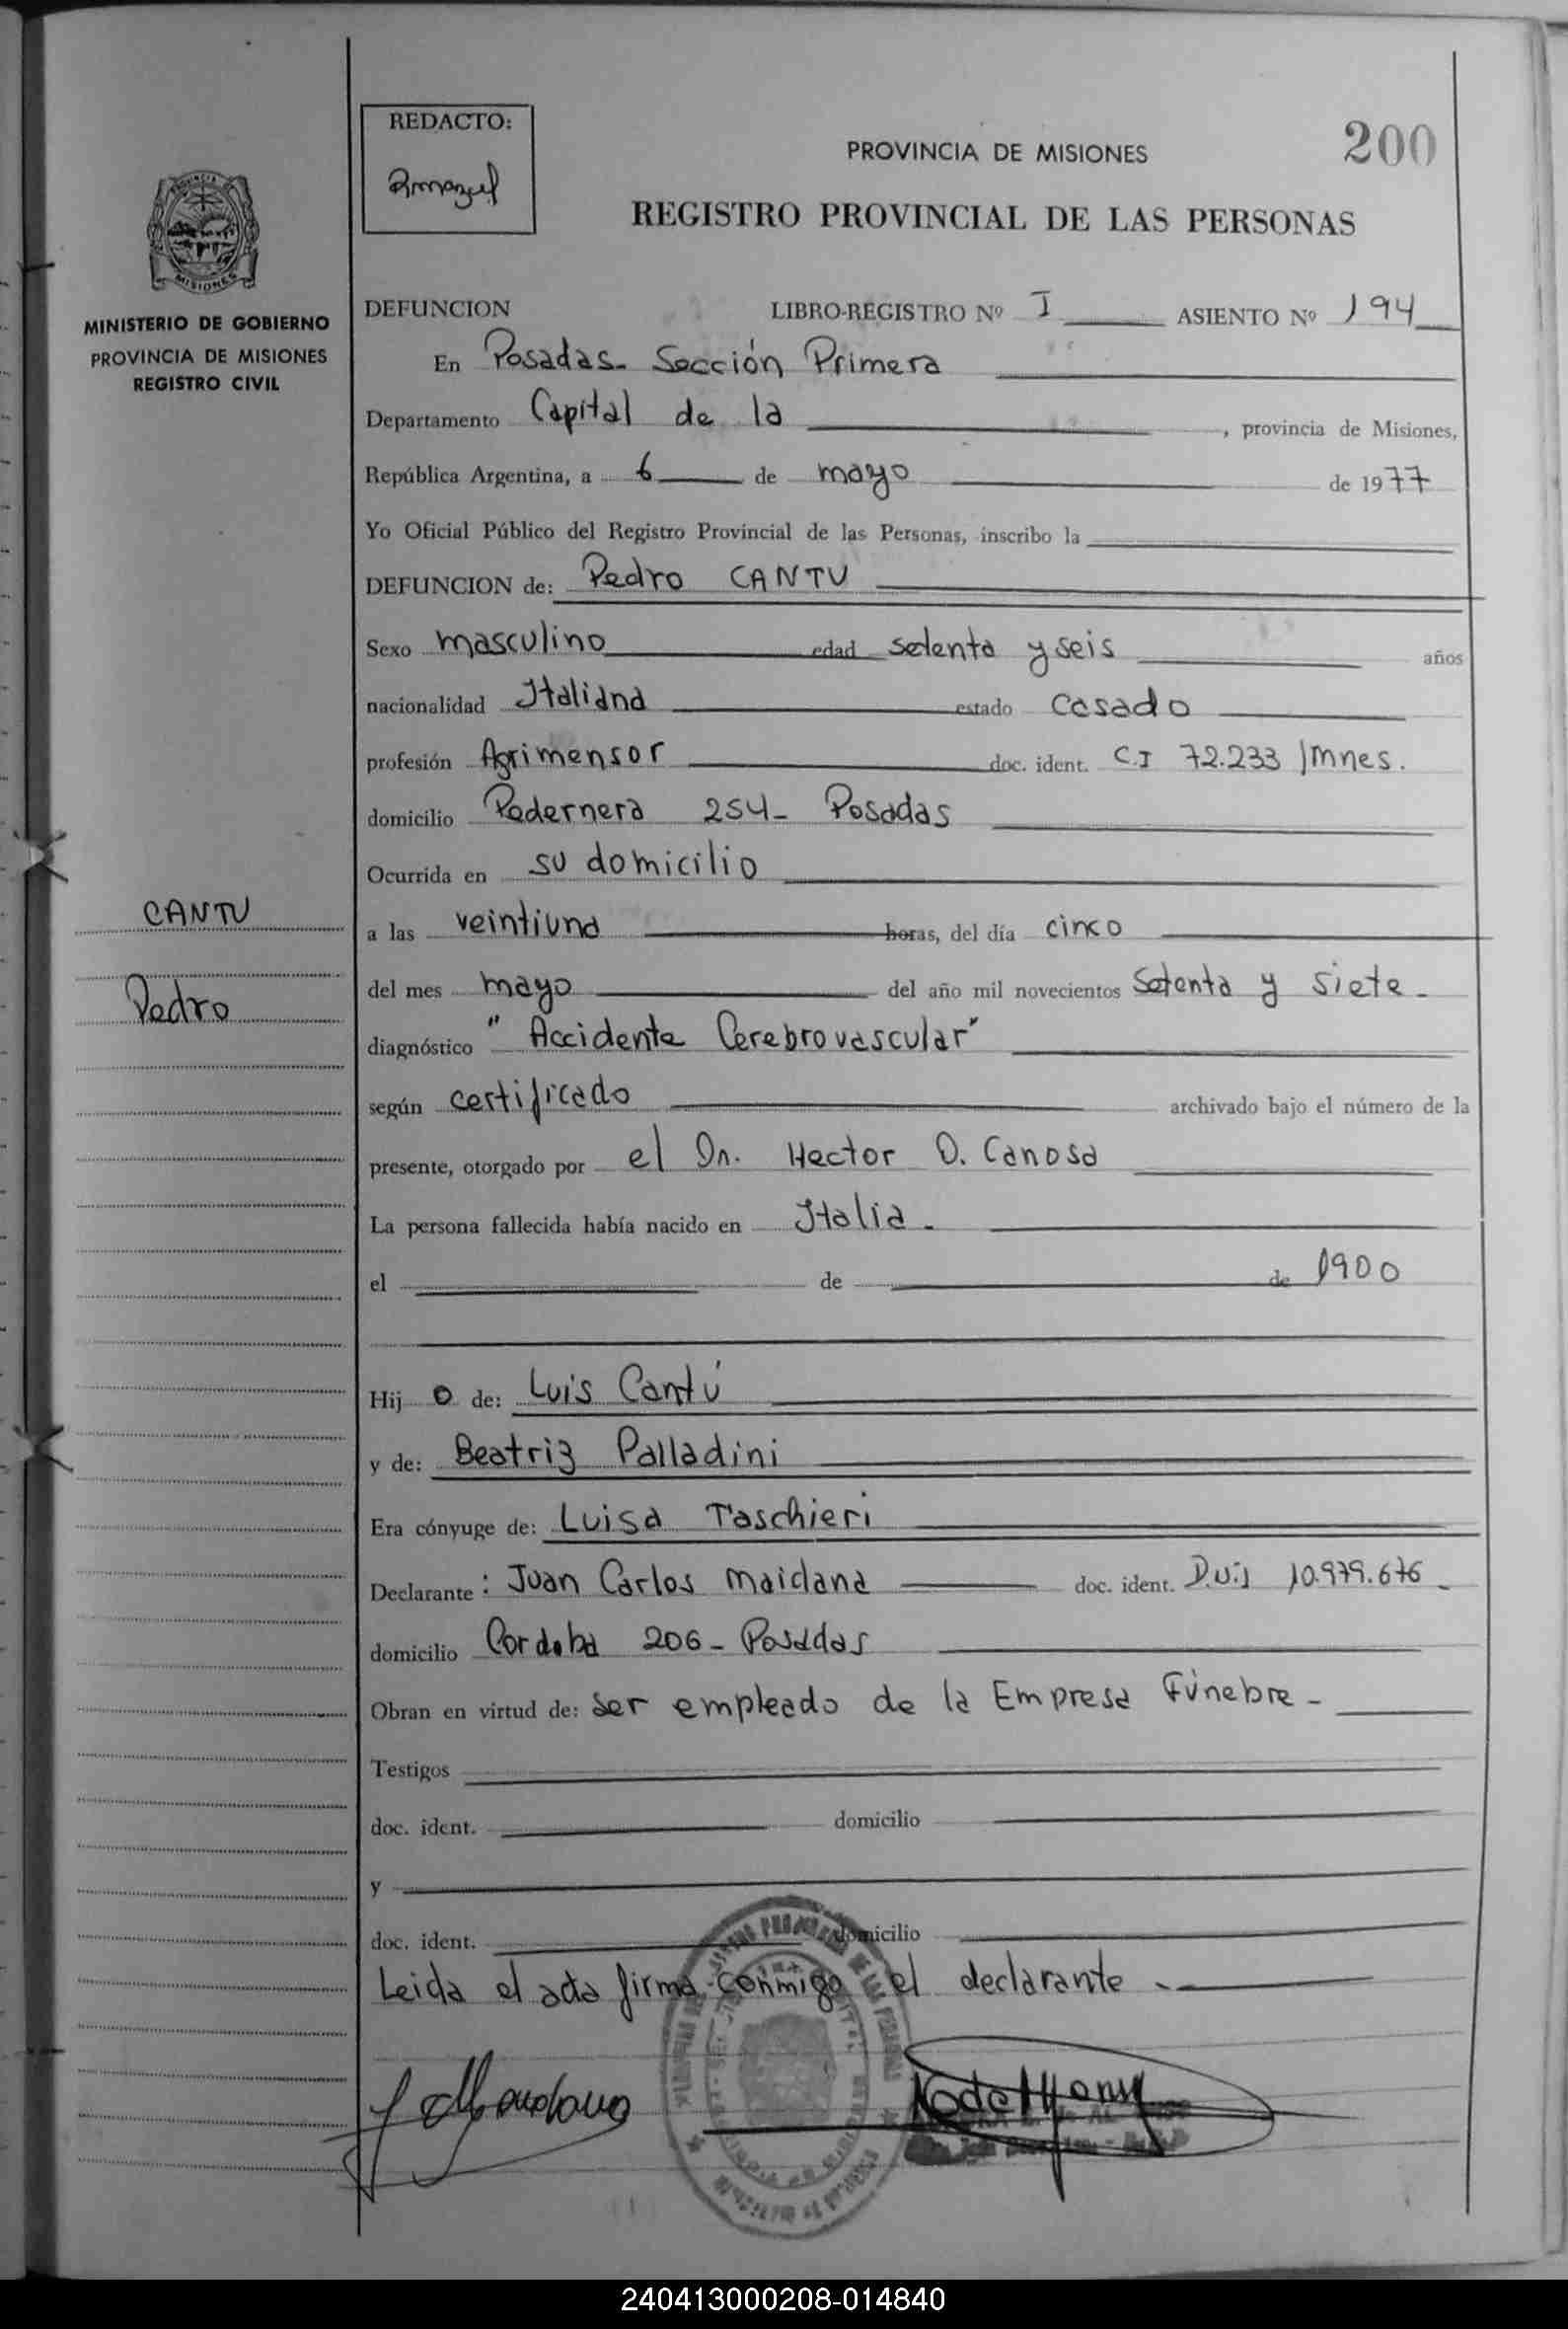 REDACTO:
200
PROVINCIA DE MISIONES
REGISTRO PROVINCIAL DE LAS PERSONAS
MISIONES
MINISTERIO DE GOBIERNO
PROVINCIA DE MISIONES
REGISTRO CIVIL
DEFUNCION LIBRO-REGISTRO Nº I ASIENTO Nº 194
En Posadas - Sección Primera
Departamento Capital de la , provincia de Misiones,
República Argentina, a 6 de mayo de 1977
Yo Oficial Público del Registro Provincial de las Personas, inscribo la
DEFUNCION de: Pedro CANTU
Sexo masculino edad setenta y seis años
nacionalidad Italiana estado casado
profesión Agrimensor doc. ident. C.I 72.233 /Mnes.
domicilio Pedernera 254 - Posadas
Ocurrida en su domicilio
CANTU
Pedro
a las veintiuna horas, del día cinco
del mes mayo del año mil novecientos setenta y siete -
diagnóstico "Accidente Cerebrovascular"
según certificado archivado bajo el número de la
presente, otorgado por el Dr. Hector O. Canosa
La persona fallecida había nacido en Italia -
el de de 1900
Hij o de: Luis Cantú
y de: Beatriz Palladini
Era cónyuge de: Luisa Taschieri
Declarante: Juan Carlos Maidana doc. ident. 10.979.676 -
domicilio Cordoba 206 - Posadas
Obran en virtud de: ser empleado de la Empresa Fúnebre -
Testigos
doc. ident. domicilio
y
doc. ident. domicilio
Leida el acta firma conmigo el declarante -
240413000208-014840